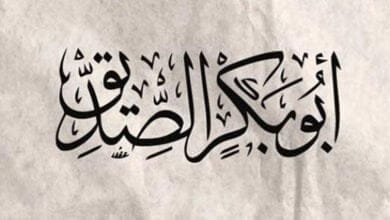 أبُو بَكْرٍ الصِّدِّيق